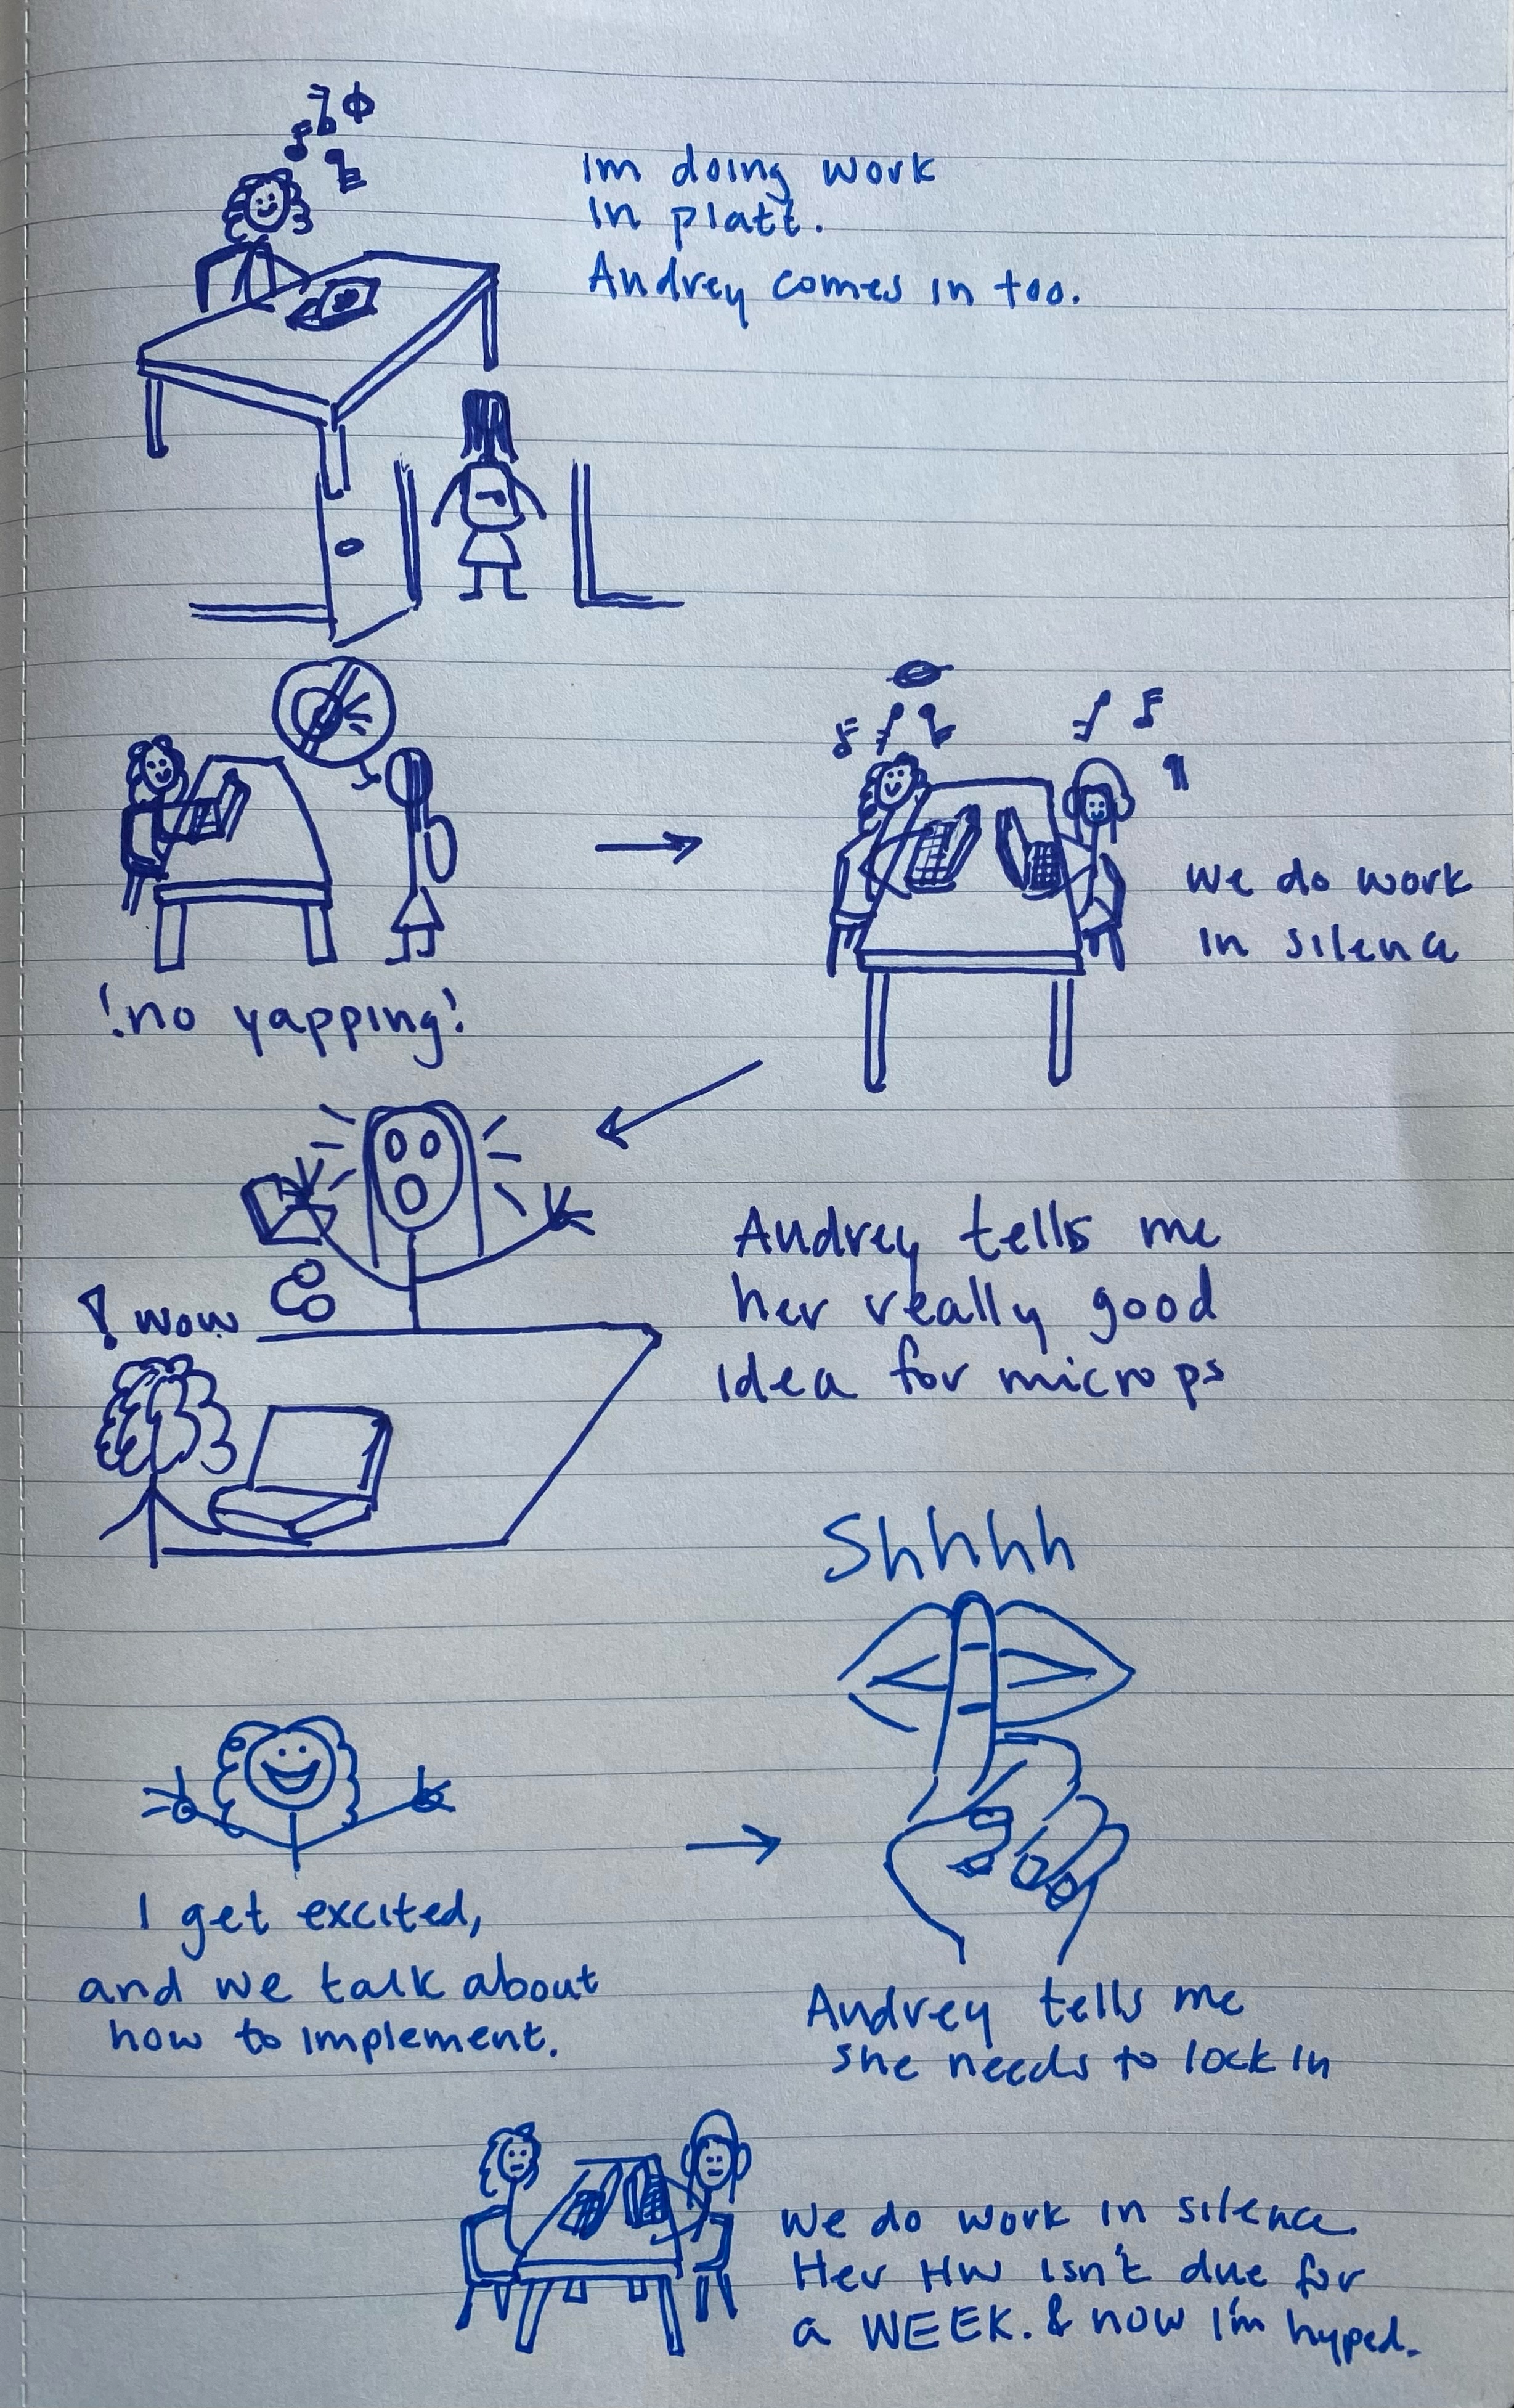 Im doing work
in platt.
Audrey comes in too.
!no yapping!
We do work
in silence
Audrey tells me
her really good
idea for microps
! wow
Shhhh
I get excited,
and we talk about
how to implement.
Audrey tells me
she needs to lock in
We do work in silence.
Her HW isn't due for
a WEEK. & now I'm hyped.